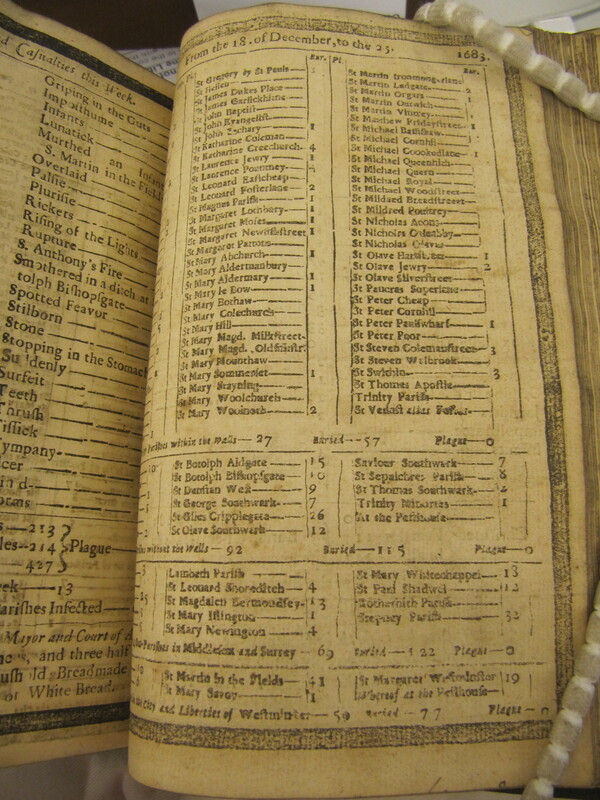 d Casualties this Week.
Griping in the Guts
Imposthume
Infants
Lunatick
Murthed an Infant
S. Martin in the Fields
Overlaid
Palsie
Plurisie
Rickets
Rising of the Lights
Rupture
S. Anthony's Fire
Smothered in a ditch at
tolph Bishopsgate
Spotted Feavor
Stilborn
Stone
Stopping in the Stomach
Su'denly
Surfeit
Teeth
Thrush
Tissick
Tympany
cer
ind
orms
s—213
les—214 Plague
427
eek—13
arishes Infected
Mayor and Court of
and three half
Bread made
or White Bread.
From the 18. of December, to the 25. 1683.
Bur. Pl. Bur.
St Gregory by St Pauls
St Hellen
St James Dukes Place
St James Garlickhithe
St John Baptist
St John Evangelist
St John Zachary 1
St Katharine Coleman
St Katharine Creechurch 4
St Laurence Jewry 1
St Laurence Pountney
St Leonard Eastcheap
St Leonard Fosterlane 2
St Magnus Parish 1
St Margaret Lothbury 1
St Margaret Moses 1
St Margaret Newfishstreet 1
St Margaret Pattons
St Mary Abchurch 1
St Mary Aldermanbury
St Mary Aldermary 1
St Mary le Bow 1
St Mary Bothaw
St Mary Colechurch
St Mary Hill
St Mary Magd. Milkstreet
St Mary Magd. Oldfishstr.
St Mary Mounthaw
St Mary Sommerset 1
St Mary Stayning
St Mary Woolchurch
St Mary Woolnoth 2
St Martin Ironmongerlane
St Martin Ludgate 2
St Martin Orgars 1
St Martin Outwich
St Martin Vintrey
St Matthew Fridaystreet 1
St Michael Bassishaw
St Michael Cornhil
St Michael Crookedlane 1
St Michael Queenhith
St Michael Quern
St Michael Royal
St Michael Woodstreet
St Mildred Breadstreet
St Mildred Poultrey
St Nicholas Acons
St Nicholas Coleabby
St Nicholas Olaves
St Olave Hartstreet 1
St Olave Jewry 2
St Olave Silverstreet
St Pancras Soperlane
St Peter Cheap
St Peter Cornhil
St Peter Paulswharf 1
St Peter Poor
St Steven Colemanstreet 3
St Steven Walbrook
St Swithin 3
St Thomas Apostle
Trinity Parish
St Vedast alias Foster
Parishes within the Walls—27 Buried—57 Plague—0
St Botolph Aldgate 15
St Botolph Bishopsgate 10
St Dunstan West 9
St George Southwark 7
St Giles Cripplegate 26
St Olave Southwark 12
Saviour Southwark 7
St Sepulchres Parish 8
St Thomas Southwark 2
Trinity Minories 1
At the Pesthouse
without the Walls—92 Buried—115 Plague—0
Lambeth Parish
St Leonard Shoreditch 4
St Magdalen Bermondsey 13
St Mary Islington 1
St Mary Newington 4
St Mary Whitechappel 13
St Paul Shadwel 12
Rotherhith Parish
Stepney Parish 32
Parishes in Middlesex and Surrey—69 Buried—122 Plague—0
St Martin in the Fields 41
St Mary Savoy 1
St Margaret Westminster 19
Whereof at the Pesthouse
City and Liberties of Westminster—59 Buried—77 Plague—0